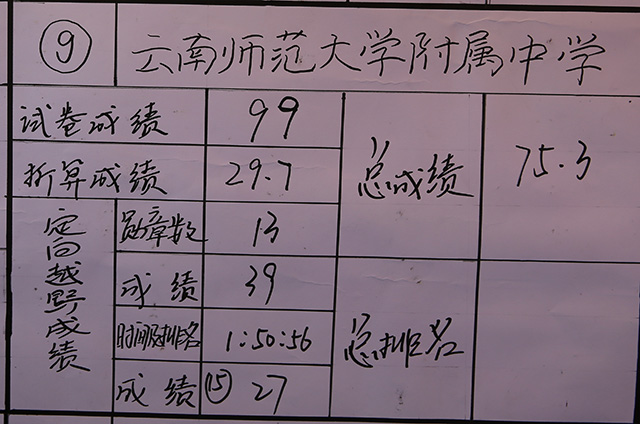 ⑨ 云南师范大学附属中学
试卷成绩 99
折算成绩 29.7
总成绩 75.3
定向越野成绩
勋章数 13
成绩 39
时间及排名 1:50:56
成绩 ⑮ 27
总排名